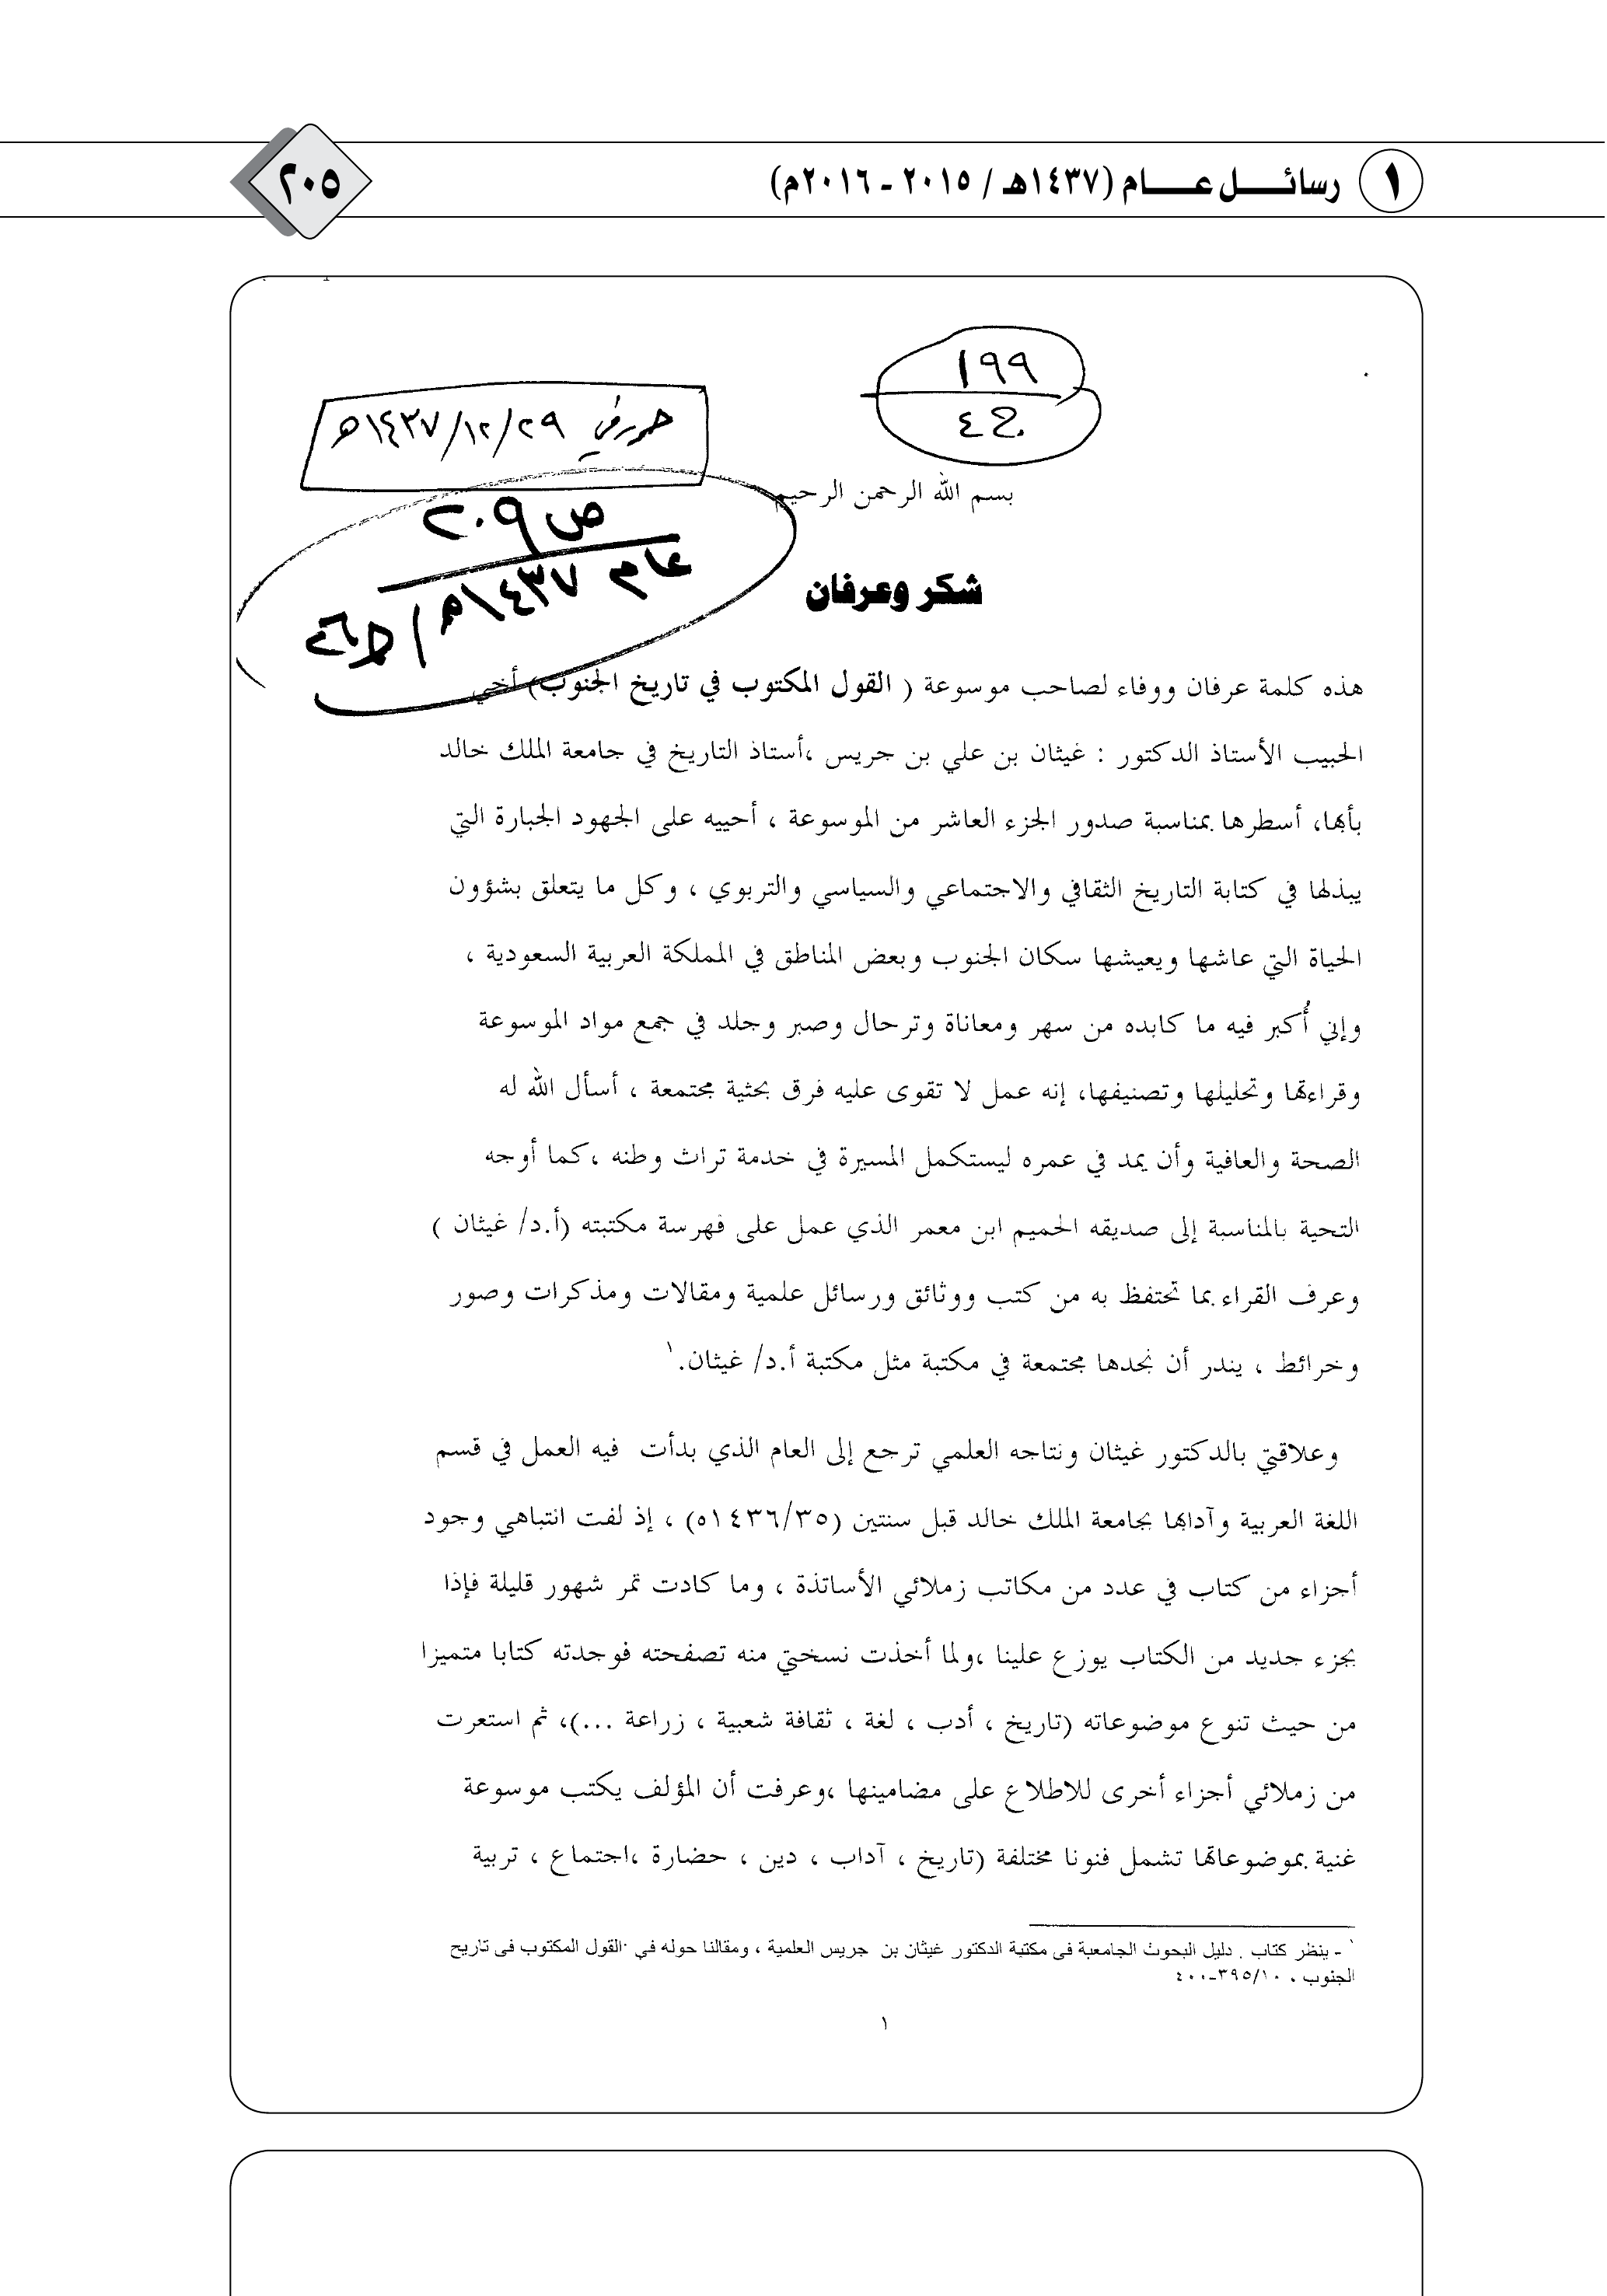 ١ رسائل عام (١٤٣٧هـ / ٢٠١٥ - ٢٠١٦م)
٢٠٥
١٩٩
حرر في ١٤٣٧/١٢/٢٩هـ
بسم الله الرحمن الرحيم
ص ٢٠٩
عام ١٤٣٧هـ /
شكر وعرفان
هذه كلمة عرفان ووفاء لصاحب موسوعة ( القول المكتوب في تاريخ الجنوب) أخي
الحبيب الأستاذ الدكتور : غيثان بن علي بن جريس ،أستاذ التاريخ في جامعة الملك خالد
بأبها، أسطرها بمناسبة صدور الجزء العاشر من الموسوعة ، أحييه على الجهود الجبارة التي
يبذلها في كتابة التاريخ الثقافي والاجتماعي والسياسي والتربوي ، وكل ما يتعلق بشؤون
الحياة التي عاشها ويعيشها سكان الجنوب وبعض المناطق في المملكة العربية السعودية ،
وإني أُكبر فيه ما كابده من سهر ومعاناة وترحال وصبر وجلد في جمع مواد الموسوعة
وقراءتها وتحليلها وتصنيفها، إنه عمل لا تقوى عليه فرق بحثية مجتمعة ، أسأل الله له
الصحة والعافية وأن يمد في عمره ليستكمل المسيرة في خدمة تراث وطنه ،كما أوجه
التحية بالمناسبة إلى صديقه الحميم ابن معمر الذي عمل على فهرسة مكتبته (أ.د/ غيثان )
وعرف القراء بما تحتفظ به من كتب ووثائق ورسائل علمية ومقالات ومذكرات وصور
وخرائط ، يندر أن نجدها مجتمعة في مكتبة مثل مكتبة أ.د/ غيثان.١
وعلاقتي بالدكتور غيثان ونتاجه العلمي ترجع إلى العام الذي بدأت فيه العمل في قسم
اللغة العربية وآدابها بجامعة الملك خالد قبل سنتين (١٤٣٦/٣٥ه) ، إذ لفت انتباهي وجود
أجزاء من كتاب في عدد من مكاتب زملائي الأساتذة ، وما كادت تمر شهور قليلة فإذا
بجزء جديد من الكتاب يوزع علينا ،ولما أخذت نسختي منه تصفحته فوجدته كتابا متميزا
من حيث تنوع موضوعاته (تاريخ ، أدب ، لغة ، ثقافة شعبية ، زراعة ...)، ثم استعرت
من زملائي أجزاء أخرى للاطلاع على مضامينها ،وعرفت أن المؤلف يكتب موسوعة
غنية بموضوعاتها تشمل فنونا مختلفة (تاريخ ، آداب ، دين ، حضارة ،اجتماع ، تربية
١ - ينظر كتاب . دليل البحوث الجامعية في مكتبة الدكتور غيثان بن جريس العلمية ، ومقالنا حوله في القول المكتوب في تاريخ
الجنوب ، ٣٩٥/١٠-٤٠٠
١